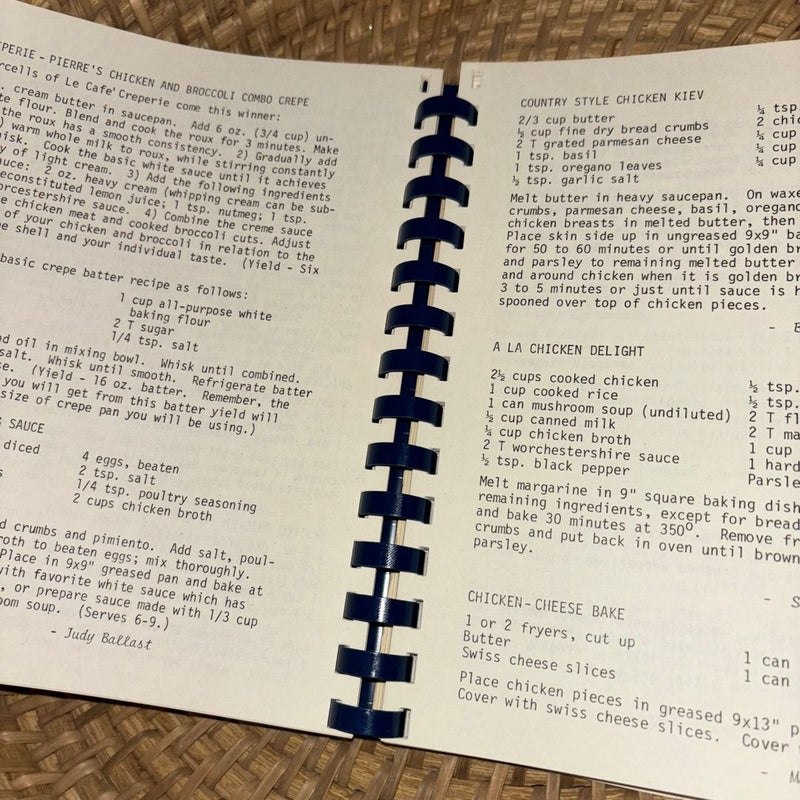 PERIE - PIERRE'S CHICKEN AND BROCCOLI COMBO CREPE
rcells of Le Cafe' Creperie come this winner:
. cream butter in saucepan. Add 6 oz. (3/4 cup) un-
te flour. Blend and cook the roux for 3 minutes. Make
the roux has a smooth consistency. 2) Gradually add
) warm whole milk to roux, while stirring constantly
isk. Cook the basic white sauce until it achieves
y of light cream. 3) Add the following ingredients
auce: 2 oz. heavy cream (whipping cream can be sub-
econstituted lemon juice; 1 tsp. nutmeg; 1 tsp.
orcestershire sauce. 4) Combine the creme sauce
e chicken meat and cooked broccoli cuts. Adjust
of your chicken and broccoli in relation to the
e shell and your individual taste. (Yield - Six
basic crepe batter recipe as follows:
1 cup all-purpose white
baking flour
2 T sugar
1/4 tsp. salt
nd oil in mixing bowl. Whisk until combined.
salt. Whisk until smooth. Refrigerate batter
se. (Yield - 16 oz. batter. Remember, the
you will get from this batter yield will
size of crepe pan you will be using.)
G SAUCE
diced
4 eggs, beaten
2 tsp. salt
1/4 tsp. poultry seasoning
2 cups chicken broth
d crumbs and pimiento. Add salt, poul-
roth to beaten eggs; mix thoroughly.
Place in 9x9" greased pan and bake at
with favorite white sauce which has
, or prepare sauce made with 1/3 cup
oom soup. (Serves 6-9.)
- Judy Ballast
COUNTRY STYLE CHICKEN KIEV
2/3 cup butter
½ cup fine dry bread crumbs
2 T grated parmesan cheese
1 tsp. basil
1 tsp. oregano leaves
½ tsp. garlic salt
¼ tsp.
2 chic
¼ cup
¼ cup
¼ cup
Melt butter in heavy saucepan. On waxe
crumbs, parmesan cheese, basil, oregano
chicken breasts in melted butter, then
Place skin side up in ungreased 9x9" ba
for 50 to 60 minutes or until golden br
and parsley to remaining melted butter
and around chicken when it is golden br
3 to 5 minutes or just until sauce is h
spooned over top of chicken pieces.
A LA CHICKEN DELIGHT
2½ cups cooked chicken
1 cup cooked rice
1 can mushroom soup (undiluted)
½ cup canned milk
¼ cup chicken broth
2 T worchestershire sauce
½ tsp. black pepper
½ tsp.
½ tsp.
2 T fl
2 T ma
1 cup
1 hard
Parsle
Melt margarine in 9" square baking dish
remaining ingredients, except for bread
and bake 30 minutes at 350°. Remove fr
crumbs and put back in oven until brown
parsley.
- S
CHICKEN-CHEESE BAKE
1 or 2 fryers, cut up
Butter
Swiss cheese slices
1 can
1 can
Place chicken pieces in greased 9x13" p
Cover with swiss cheese slices. Cover
- M